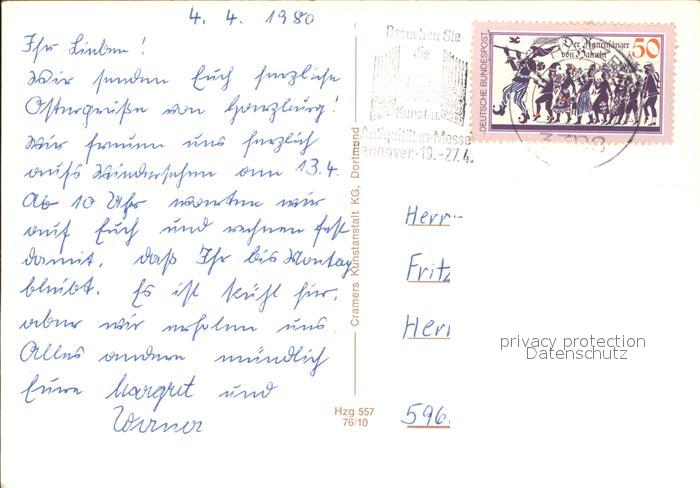 4. 4. 1980
Ihr Lieben!
Wir senden Euch herzliche
Ostergrüße von Harzburg!
Wir freuen uns herzlich
aufs Wiedersehen am 13.4.
Ab 10 Uhr warten wir
auf Euch und rechnen fest
damit, daß Ihr bis Montag
bleibt. Es ist kühl hier,
aber wir erholen uns.
Alles andere mündlich
Eure Margret und
Werner
Cramers Kunstanstalt KG, Dortmund
Hzg 557
76/10
Besuchen Sie
die
Kunst-u.
Antiquitäten-Messe
Hannover·19.-27.4.
DEUTSCHE BUNDESPOST
Der Rattenfänger
von Hameln
50
Herr
Fritz
Her
596
privacy protection
Datenschutz